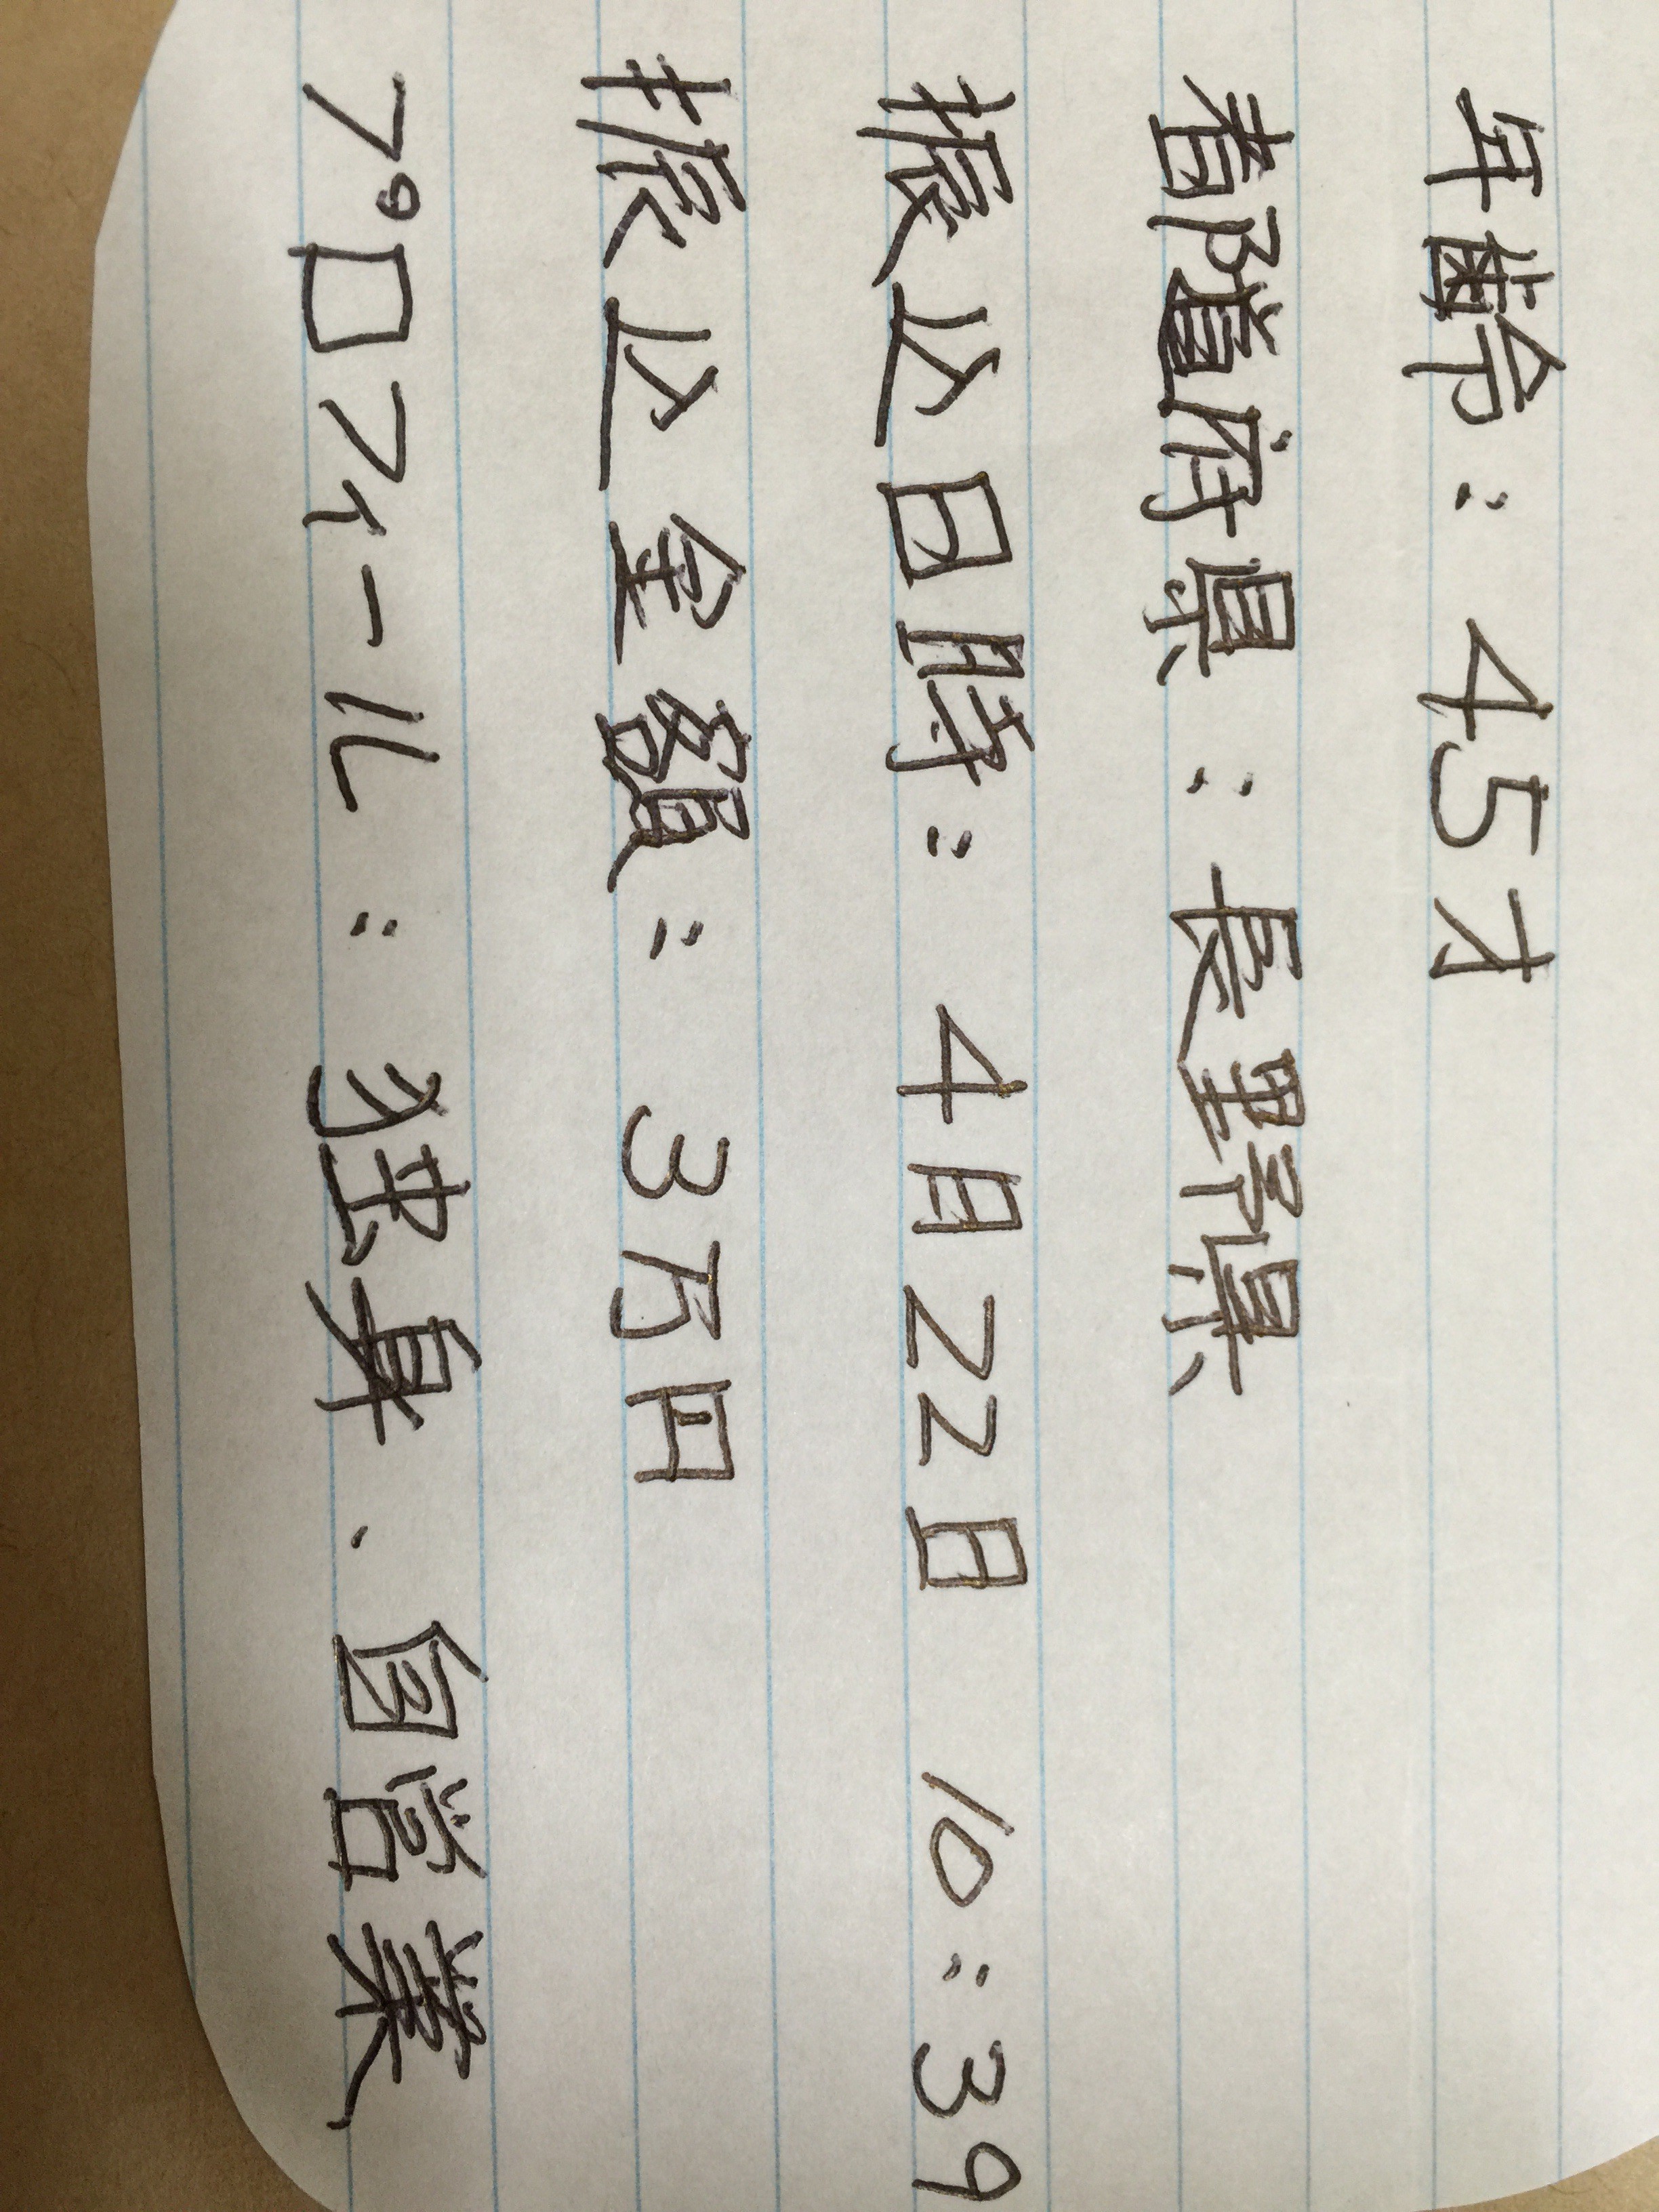 年齢：45才
都道府県：長野県
振込日時：4月22日 10：39
振込金額：3万円
プロフィール：独身、自営業